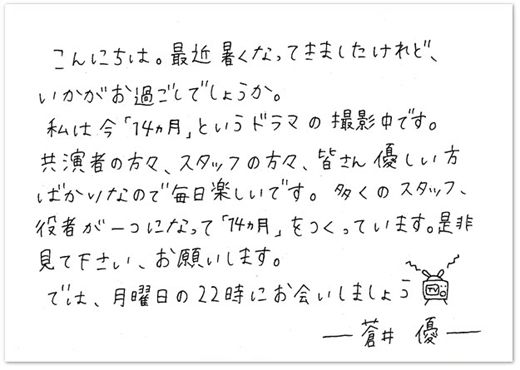 こんにちは。最近暑くなってきましたけれど、
いかがお過ごしでしょうか。
私は今「14ヵ月」というドラマの撮影中です。
共演者の方々、スタッフの方々、皆さん優しい方
ばかりなので毎日楽しいです。多くのスタッフ、
役者が一つになって「14ヵ月」をつくっています。是非
見て下さい、お願いします。
では、月曜日の22時にお会いしましょう
TV
—蒼井 優—